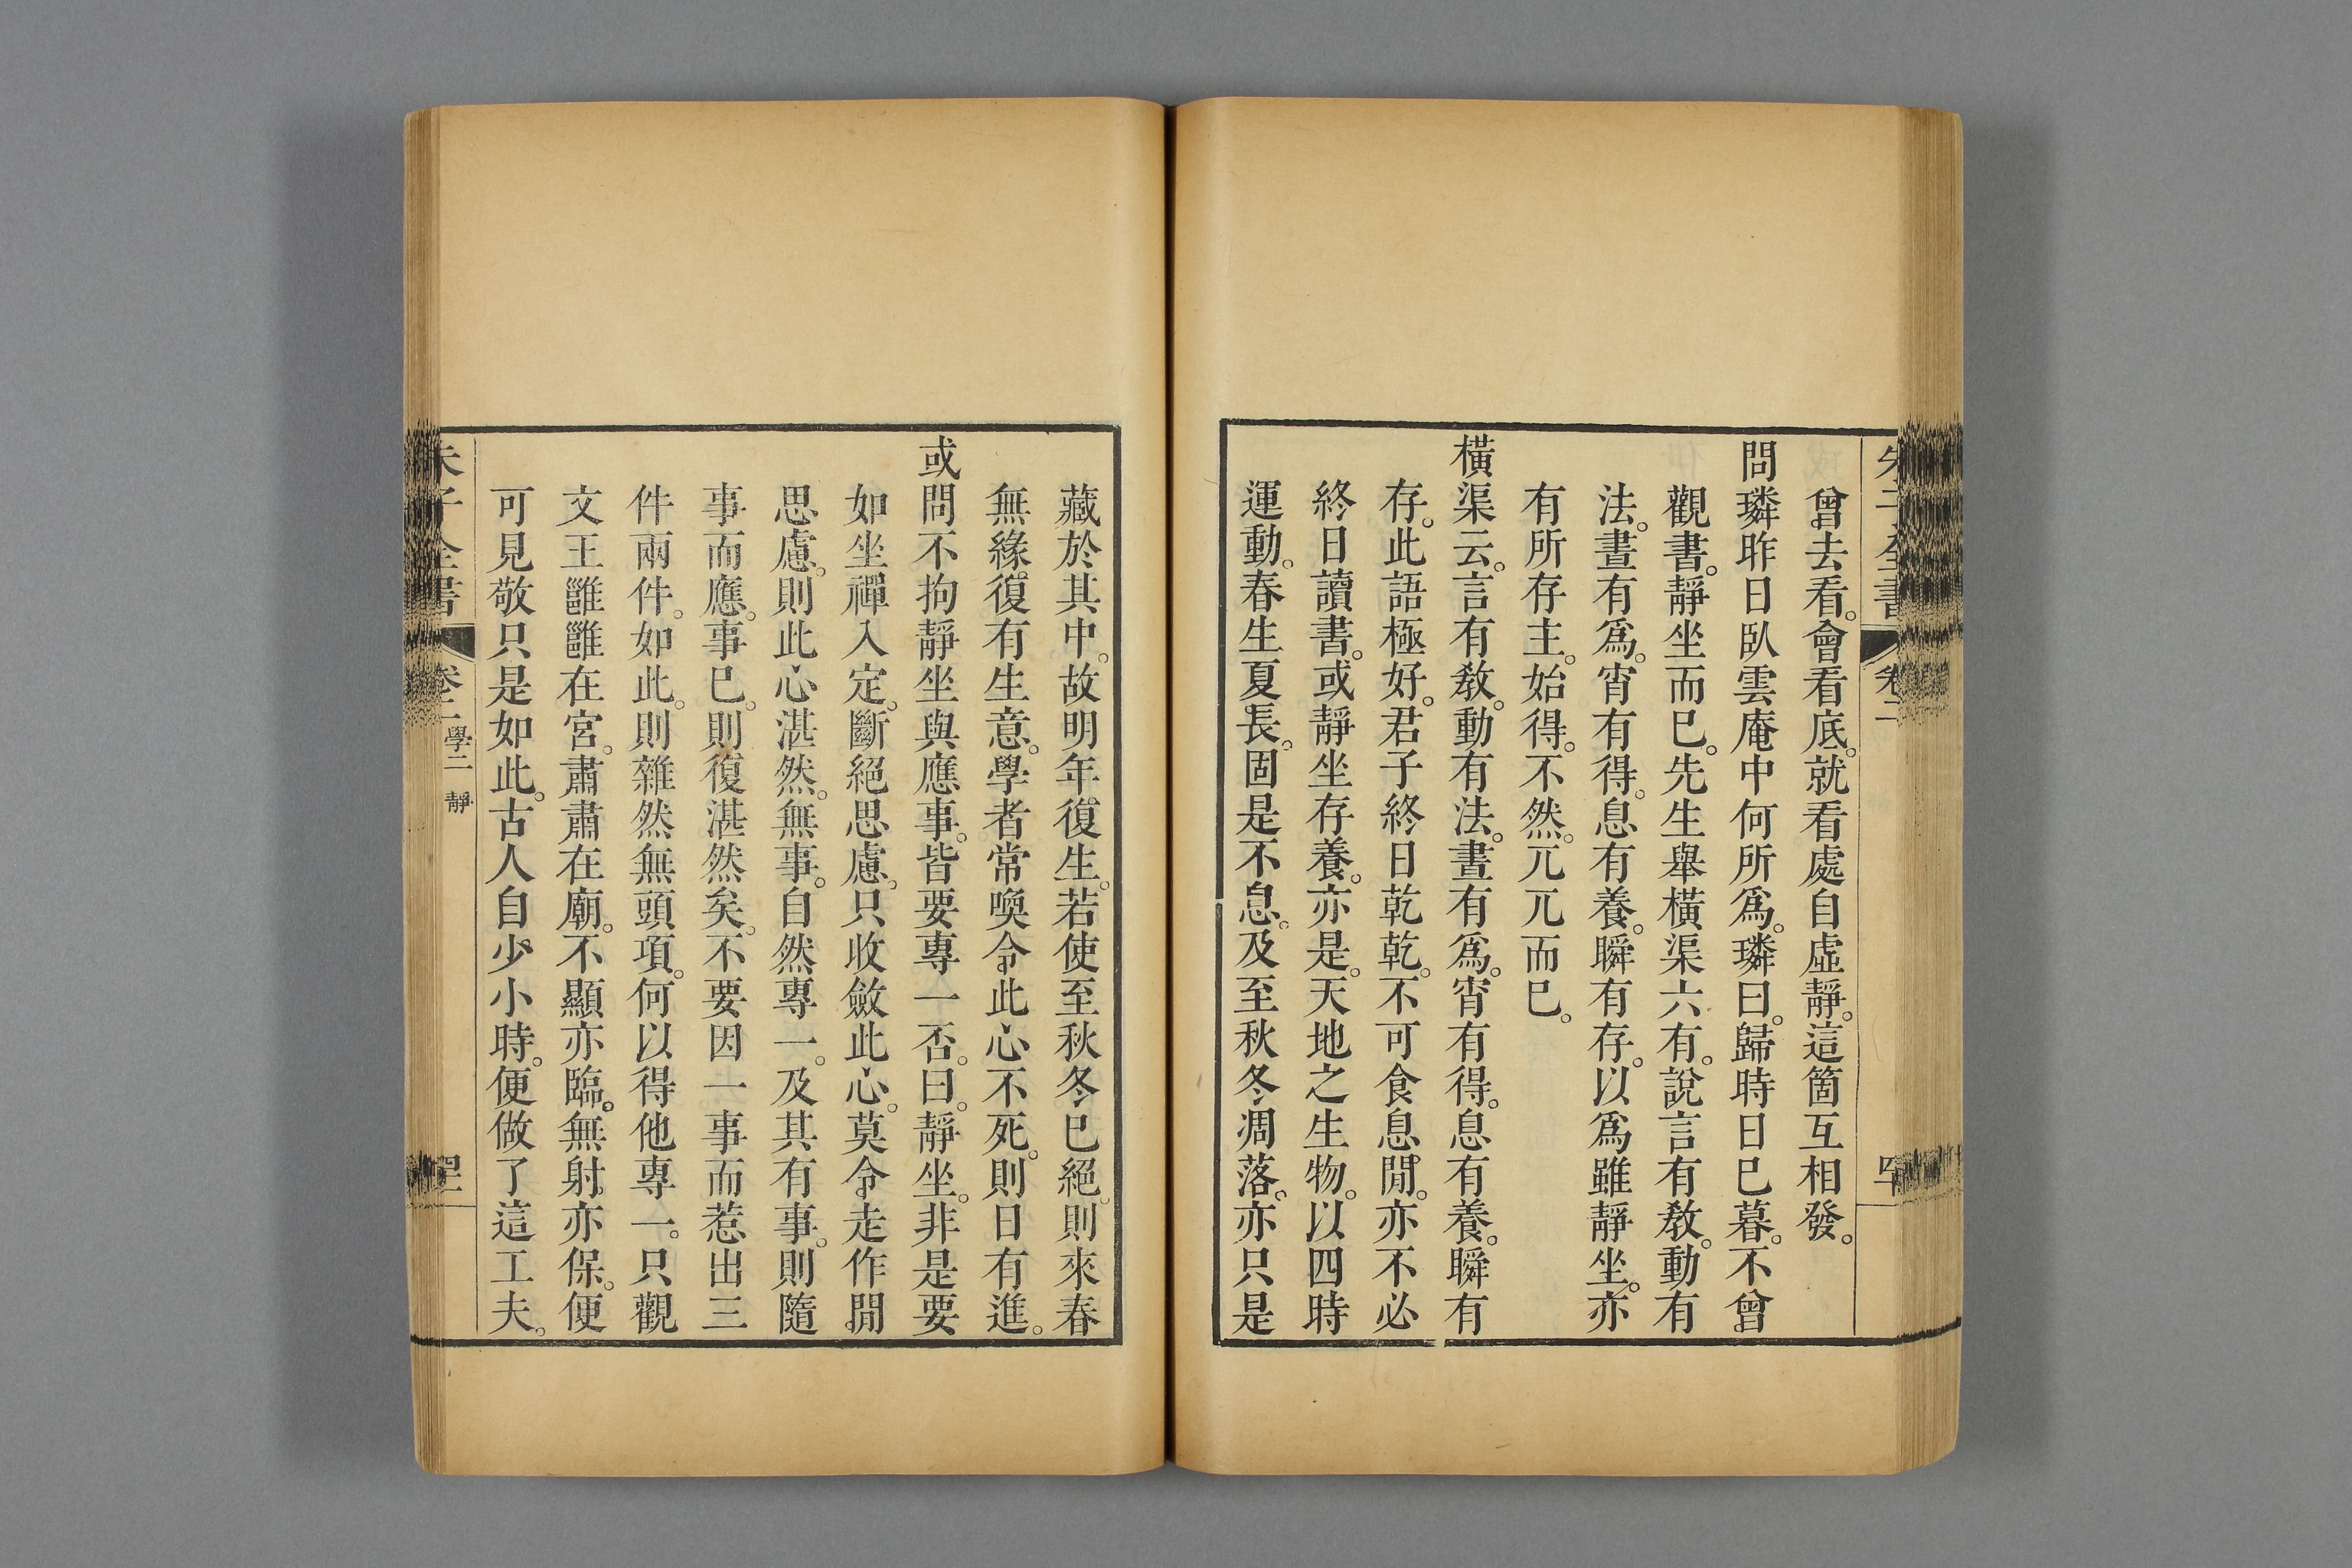 朱子全書 卷二 四十
曾去看。會看底。就看處自虛靜。這箇互相發。
問璘昨日臥雲庵中何所爲。璘曰。歸時日已暮。不曾
觀書。靜坐而已。先生舉橫渠六有。說言有敎。動有
法。晝有爲。宵有得。息有養。瞬有存。以爲雖靜坐。亦
有所存主。始得。不然。兀兀而已。
橫渠云。言有敎。動有法。晝有爲。宵有得。息有養。瞬有
存。此語極好。君子終日乾乾。不可食息閒。亦不必
終日讀書。或靜坐存養。亦是。天地之生物。以四時
運動。春生夏長。固是不息。及至秋冬凋落。亦只是
藏於其中。故明年復生。若使至秋冬已絕。則來春
無緣復有生意。學者常喚令此心不死。則日有進。
或問不拘靜坐與應事。皆要專一否。曰。靜坐。非是要
如坐禪入定。斷絕思慮。只收斂此心。莫令走作閒
思慮。則此心湛然。無事。自然專一。及其有事。則隨
事而應。事已。則復湛然矣。不要因一事而惹出三
件兩件。如此。則雜然無頭項。何以得他專一。只觀
文王雝雝在宮。肅肅在廟。不顯亦臨。無射亦保。便
可見敬只是如此。古人自少小時。便做了這工夫。
朱子全書 卷二 學二 靜